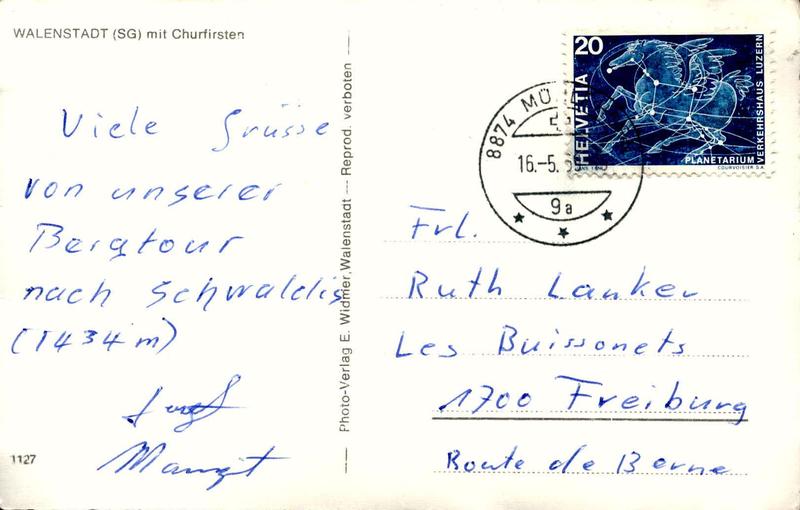 WALENSTADT (SG) mit Churfirsten
Viele Grüsse
von unserer
Bergtour
nach Schwaldis
(1434m)
Margit
1127
Photo-Verlag E. Widmer, Walenstadt — Reprod. verboten
20
HELVETIA
PLANETARIUM
VERKEHRSHAUS LUZERN
COURVOISIER S.A.
8874 MÜ
16.-5.
9a
Frl.
Ruth Lanker
Les Buissonets
1700 Freiburg
Route de Berne